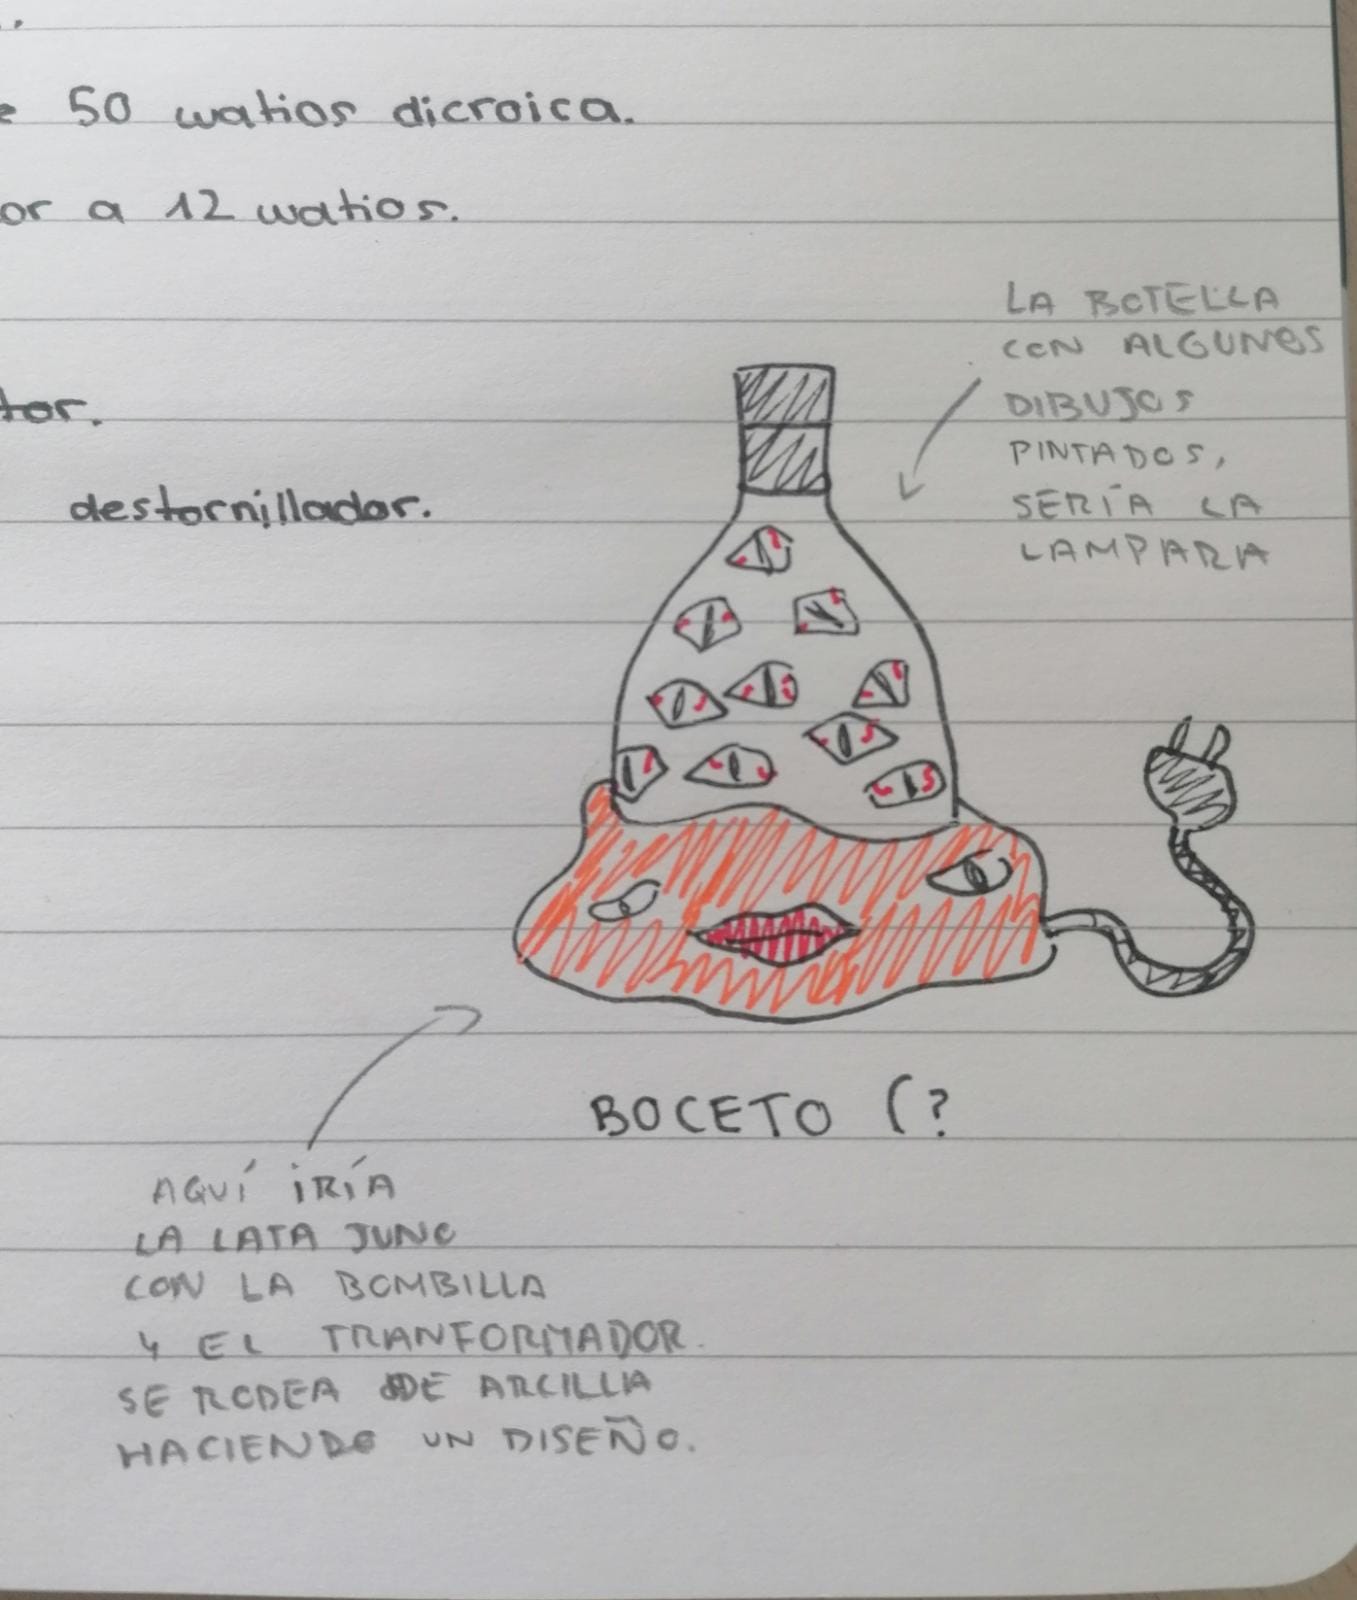 50 watios dicroica.
or a 12 watios.
tor.
destornillador.
LA BOTELLA
CON ALGUNOS
DIBUJOS
PINTADOS,
SERÍA LA
LAMPARA
BOCETO (?
AQUÍ IRÍA
LA LATA JUNO
CON LA BOMBILLA
Y EL TRANFORMADOR.
SE RODEA DE ARCILLA
HACIENDO UN DISEÑO.